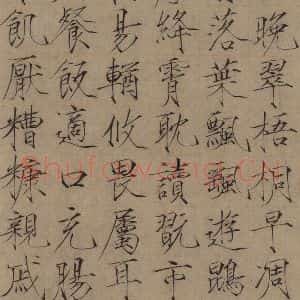 晚翠梧桐早凋
落葉飄颻遊鵾
絳霄耽讀翫市
易輶攸畏屬耳
餐飯適口充腸
飢厭糟糠親戚